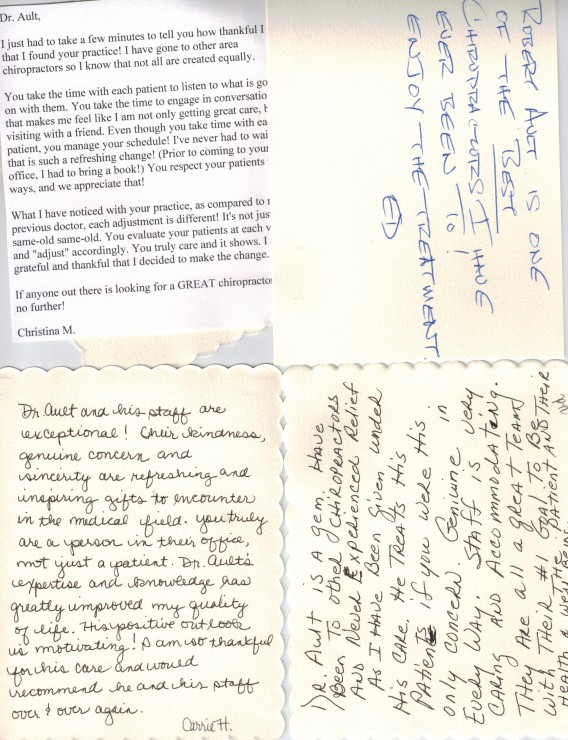 Dr. Ault,
I just had to take a few minutes to tell you how thankful I
that I found your practice! I have gone to other area
chiropractors so I know that not all are created equally.
You take the time with each patient to listen to what is go
on with them. You take the time to engage in conversatio
that makes me feel like I am not only getting great care, b
visiting with a friend. Even though you take time with ea
patient, you manage your schedule! I've never had to wai
that is such a refreshing change! (Prior to coming to your
office, I had to bring a book!) You respect your patients
ways, and we appreciate that!
What I have noticed with your practice, as compared to
previous doctor, each adjustment is different! It's not jus
same-old same-old. You evaluate your patients at each v
and "adjust" accordingly. You truly care and it shows. I
grateful and thankful that I decided to make the change.
If anyone out there is looking for a GREAT chiropracto
no further!
Christina M.
ROBERT AULT IS ONE
OF THE BEST
CHIROPRACTORS I HAVE
EVER BEEN TO!
ENJOY THE TREATMENT.
ED
Dr. Ault and his staff are
exceptional! Their kindness,
genuine concern and
sincerity are refreshing and
inspiring gifts to encounter
in the medical field. You truly
are a person in their office,
not just a patient. Dr. Ault's
expertise and knowledge has
greatly improved my quality
of life. His positive outlook
is motivating! I am so thankful
for his care and would
recommend he and his staff
over & over again.
Carrie H.
Dr. Ault is a gem. I have
been to other chiropractors
and never experienced relief
as I have been given under
his care. He treats his
patients if you were his
only concern. Genuine in
every way. Staff is very
caring and accommodating.
They are all a great team
with their #1 goal to be
the patient and their
health & well being.